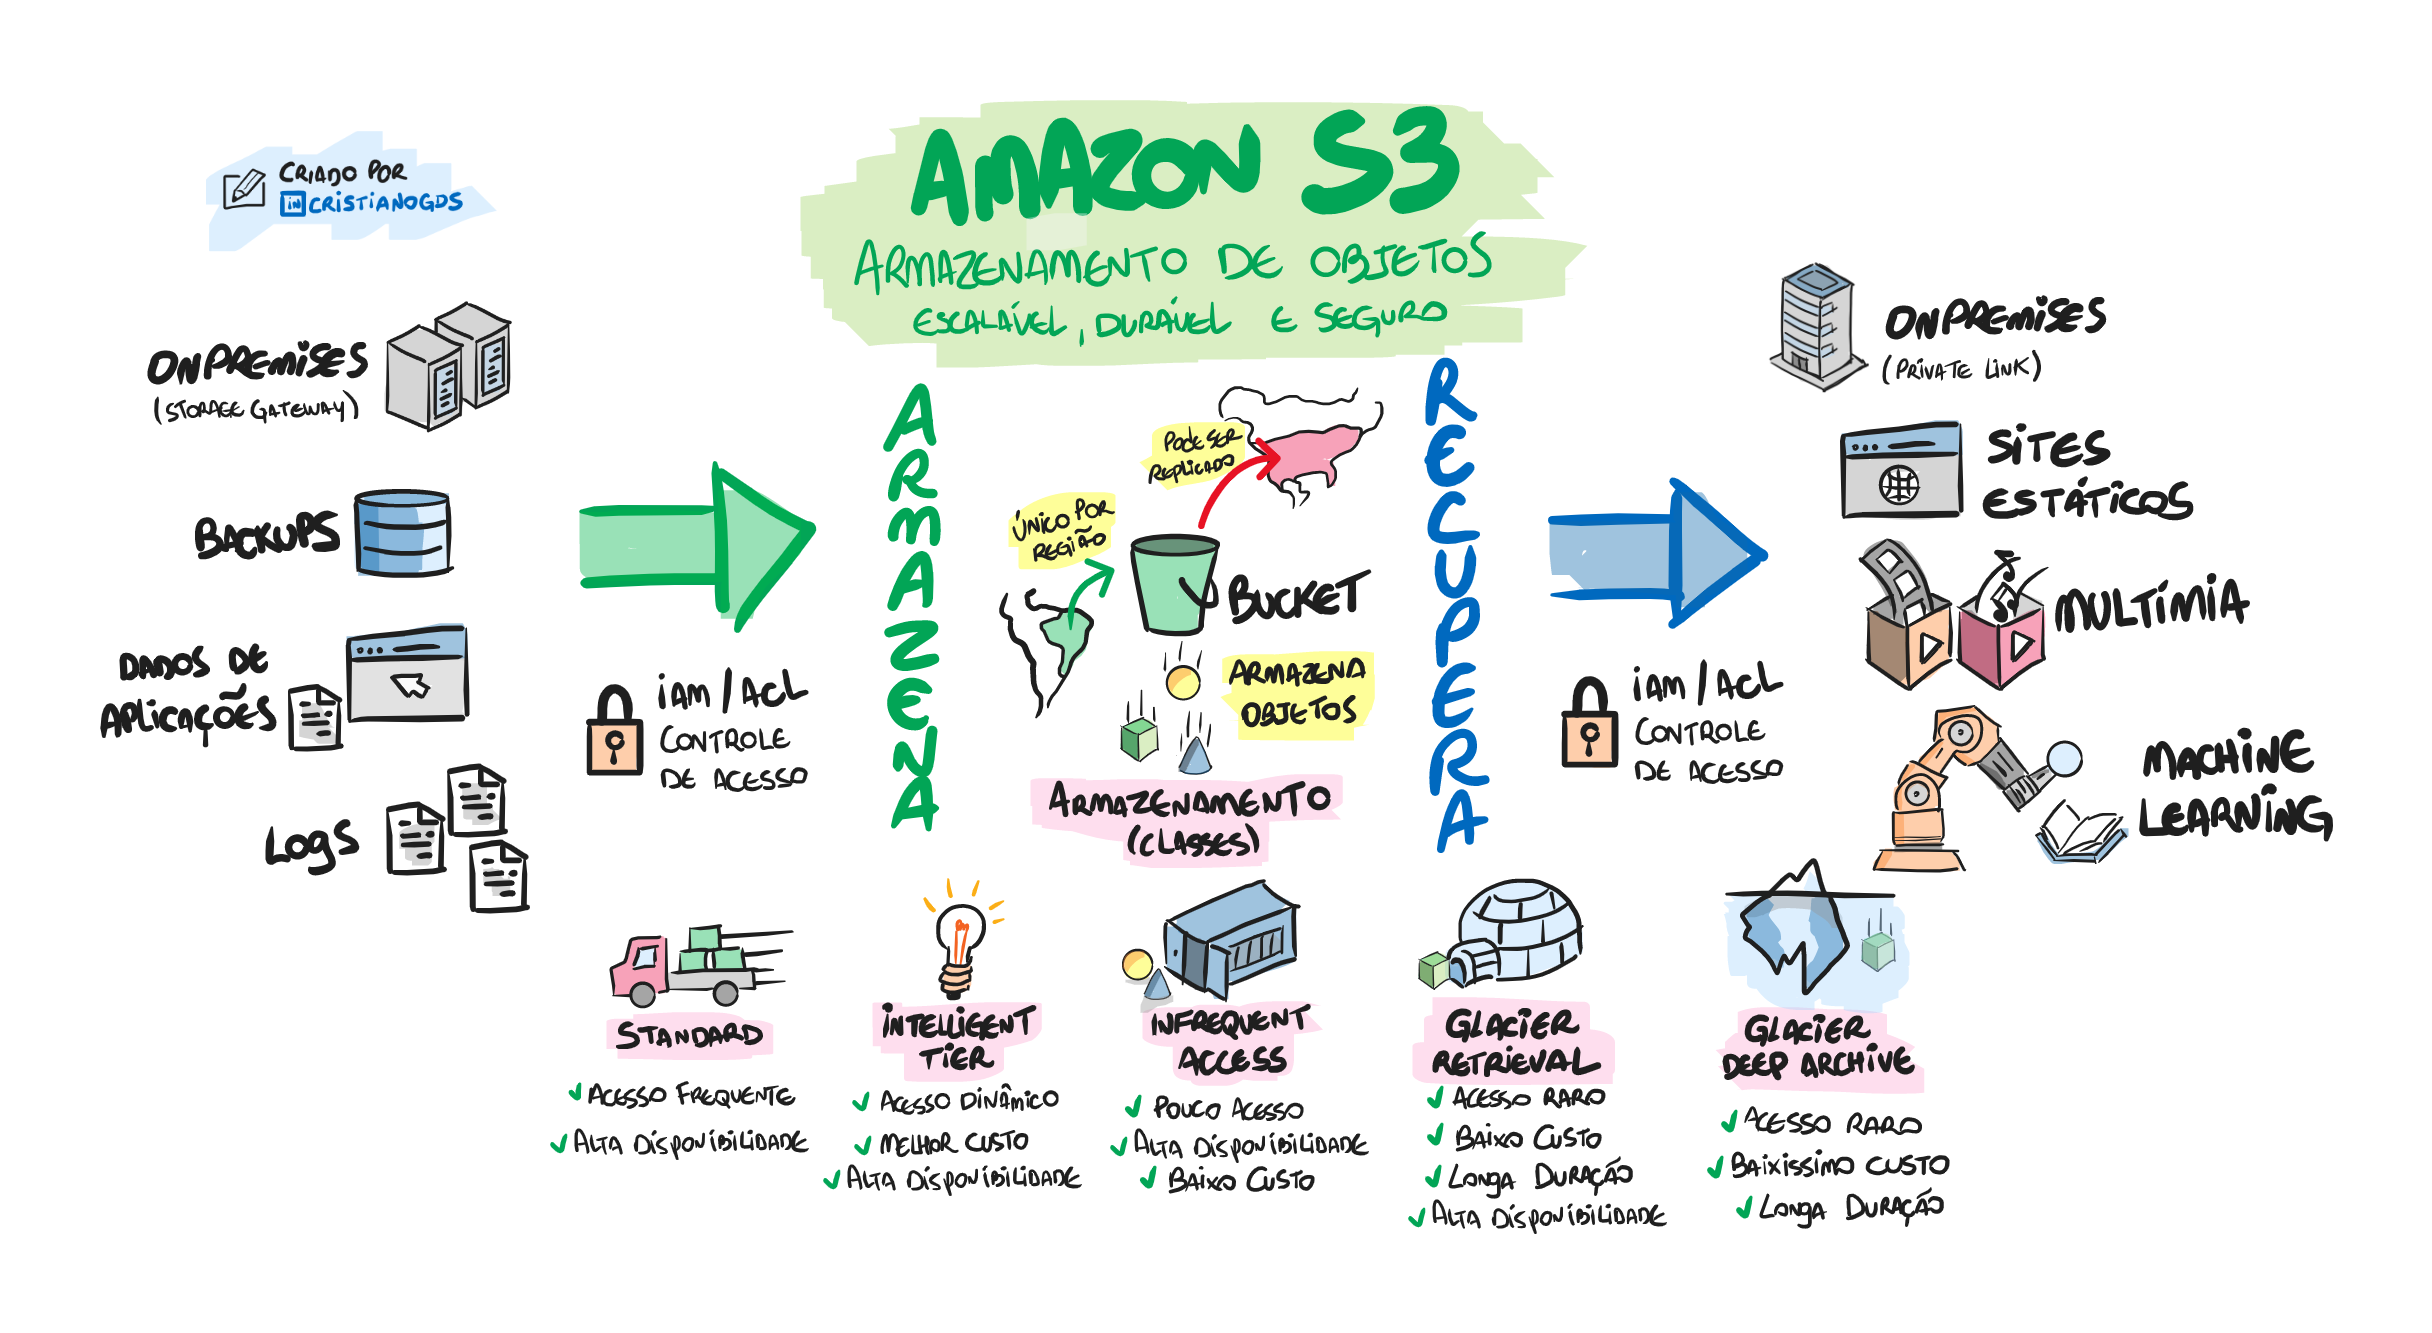 CRIADO POR
in CRISTIANOGDS
AMAZON S3
ARMAZENAMENTO DE OBJETOS
ESCALÁVEL, DURÁVEL E SEGURO
ONPREMISES
(STORAGE GATEWAY)
BACKUPS
DADOS DE
APLICAÇÕES
LOGS
IAM / ACL
CONTROLE
DE ACESSO
ARMAZENA
PODE SER
REPLICADO
ÚNICO POR
REGIÃO
BUCKET
ARMAZENA
OBJETOS
RECUPERA
IAM / ACL
CONTROLE
DE ACESSO
ONPREMISES
(PRIVATE LINK)
SITES
ESTÁTICOS
MULTIMIA
MACHINE
LEARNING
ARMAZENAMENTO
(CLASSES)
STANDARD
ACESSO FREQUENTE
ALTA DISPONIBILIDADE
INTELLIGENT
TIER
ACESSO DINÂMICO
MELHOR CUSTO
ALTA DISPONIBILIDADE
INFREQUENT
ACCESS
POUCO ACESSO
ALTA DISPONIBILIDADE
BAIXO CUSTO
GLACIER
RETRIEVAL
ACESSO RARO
BAIXO CUSTO
LONGA DURAÇÃO
ALTA DISPONIBILIDADE
GLACIER
DEEP ARCHIVE
ACESSO RARO
BAIXISSIMO CUSTO
LONGA DURAÇÃO